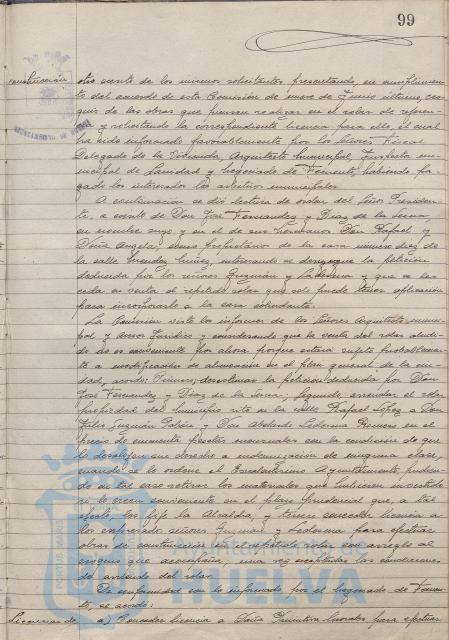 99
construcción
otro escrito de los mismos solicitantes presentando, en cumplimien-
to del acuerdo de esta Comisión de nueve de Junio último, cro-
quis de las obras que piensan realizar en el solar de referen-
cia y solicitando la correspondiente licencia para ello, el cual
ha sido informado favorablemente por los señores Fiscal
Delegado de la Vivienda, Arquitecto municipal, Inspector mu-
nicipal de Sanidad y Negociado de Fomento, habiendo pa-
gado los interesados los arbitrios municipales.
A continuación se dió lectura de orden del Señor Presiden-
te, a escrito de Don José Fernandez y Diaz de la Serna,
en nombre suyo y en el de sus hermanos Don Rafael y
Doña Angela, como propietario de la casa número diez de
la calle Mendez Nuñez, interesando se desestime la petición
deducida por los señores Guzmán y Ledesma y que se les
ceda en venta el repetido solar que solo puede tener aplicación
para incorporarlo a la casa colindante.
La Comisión visto los informes de los Señores Arquitecto munici-
pal y Asesor Jurídico y considerando que la venta del solar aludi-
do no es conveniente por ahora porque estará sujeto probablemen-
te a modificación de alineación en el plan general de la ciu-
dad, acordó: Primero; desestimar la petición deducida por Don
José Fernandez y Diaz de la Serna; Segundo, arrendar el solar
propiedad del Municipio sito en la calle Rafael López a Don
Julio Guzmán Patrón y Don Abelardo Ledesma Romero en el
precio de cincuenta pesetas mensuales con la condición de que
lo desalojen sin derecho a indemnización de ninguna clase,
cuando se lo ordene el Excelentísimo Ayuntamiento, pudien-
do en tal caso retirar los materiales que hubieren invertido
si lo creen conveniente en el plazo prudencial que, a tal
efecto, les fije la Alcaldía, y Tercero conceder licencia a
los expresados señores Guzmán y Ledesma para efectuar
obras de construcción en el repetido solar con arreglo al
croquis que acompañan, una vez aceptadas las condiciones
de arriendo del solar.
De conformidad con lo informado por el Negociado de Fomen-
to, se acordó:
Licencias de
a) Conceder licencia a Doña Primitiva para efectuar
Ayuntamiento de
HUELVA